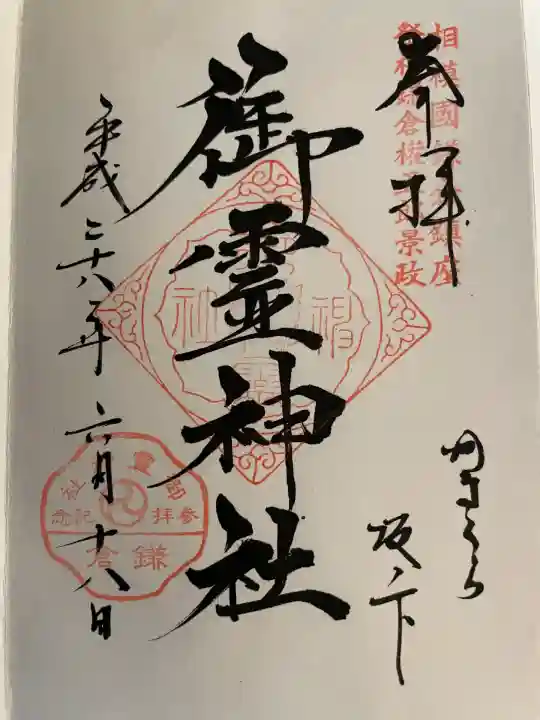 奉拝
相模國鎌倉鎮座
祭神鎌倉権五郎景政
かまくら
坂ノ下
御霊神社
平成二十八年六月十八日
参拝記念
鎌倉